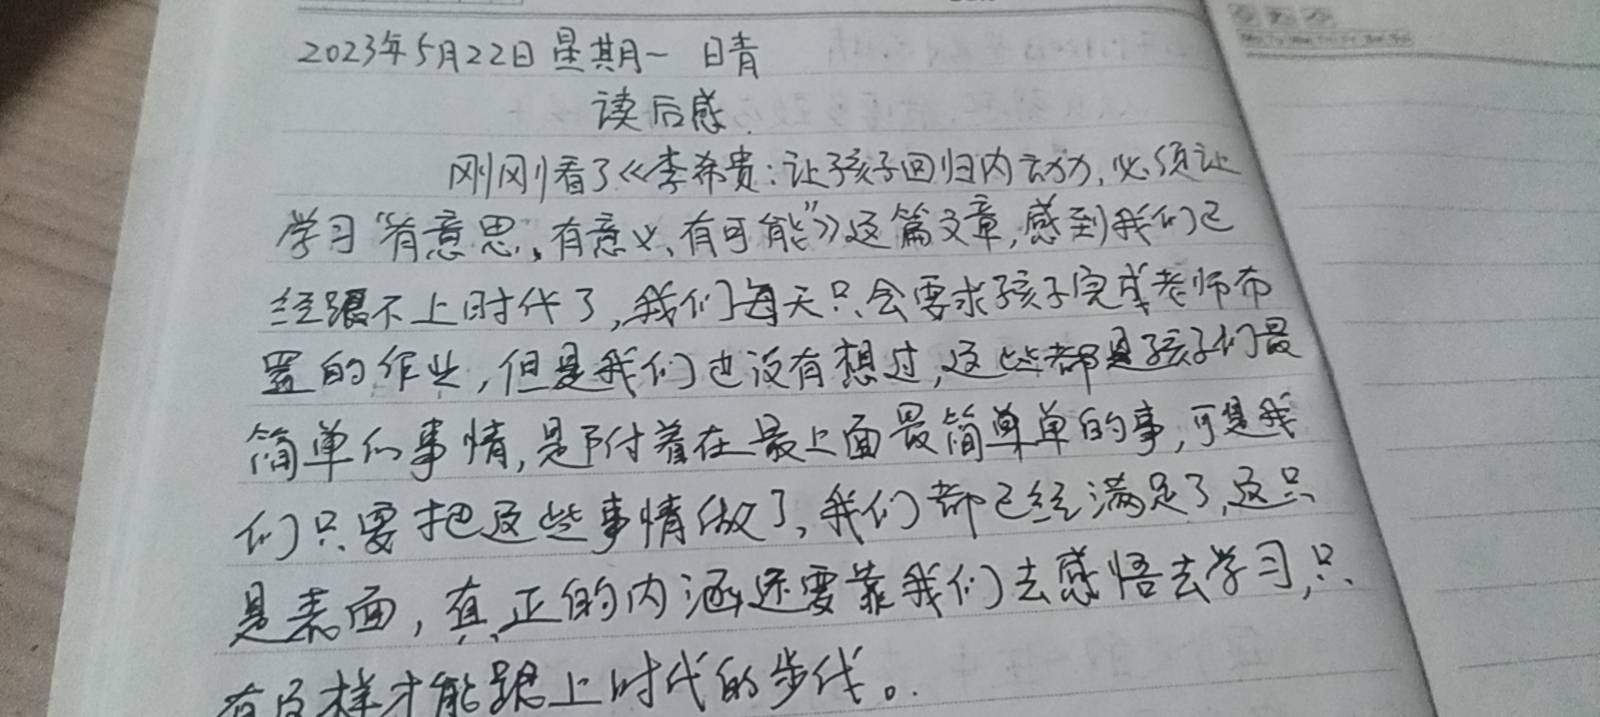 2023年5月22日 星期一 晴
读后感
刚刚看了《李希贵:让孩子回归内动力,必须让
学习“有意思、有意义、有可能”》这篇文章,感到我们已
经跟不上时代了,我们每天只会要求孩子完成老师布
置的作业,但是我们也没有想过,这些都是孩子们最
简单的事情,是附着在最上面最简单单的事,可是我
们只要把这些事情做了,我们都已经满足了,这只
是表面,真正的内涵还要靠我们去感悟去学习,只
有这样才能跟上时代的步伐。